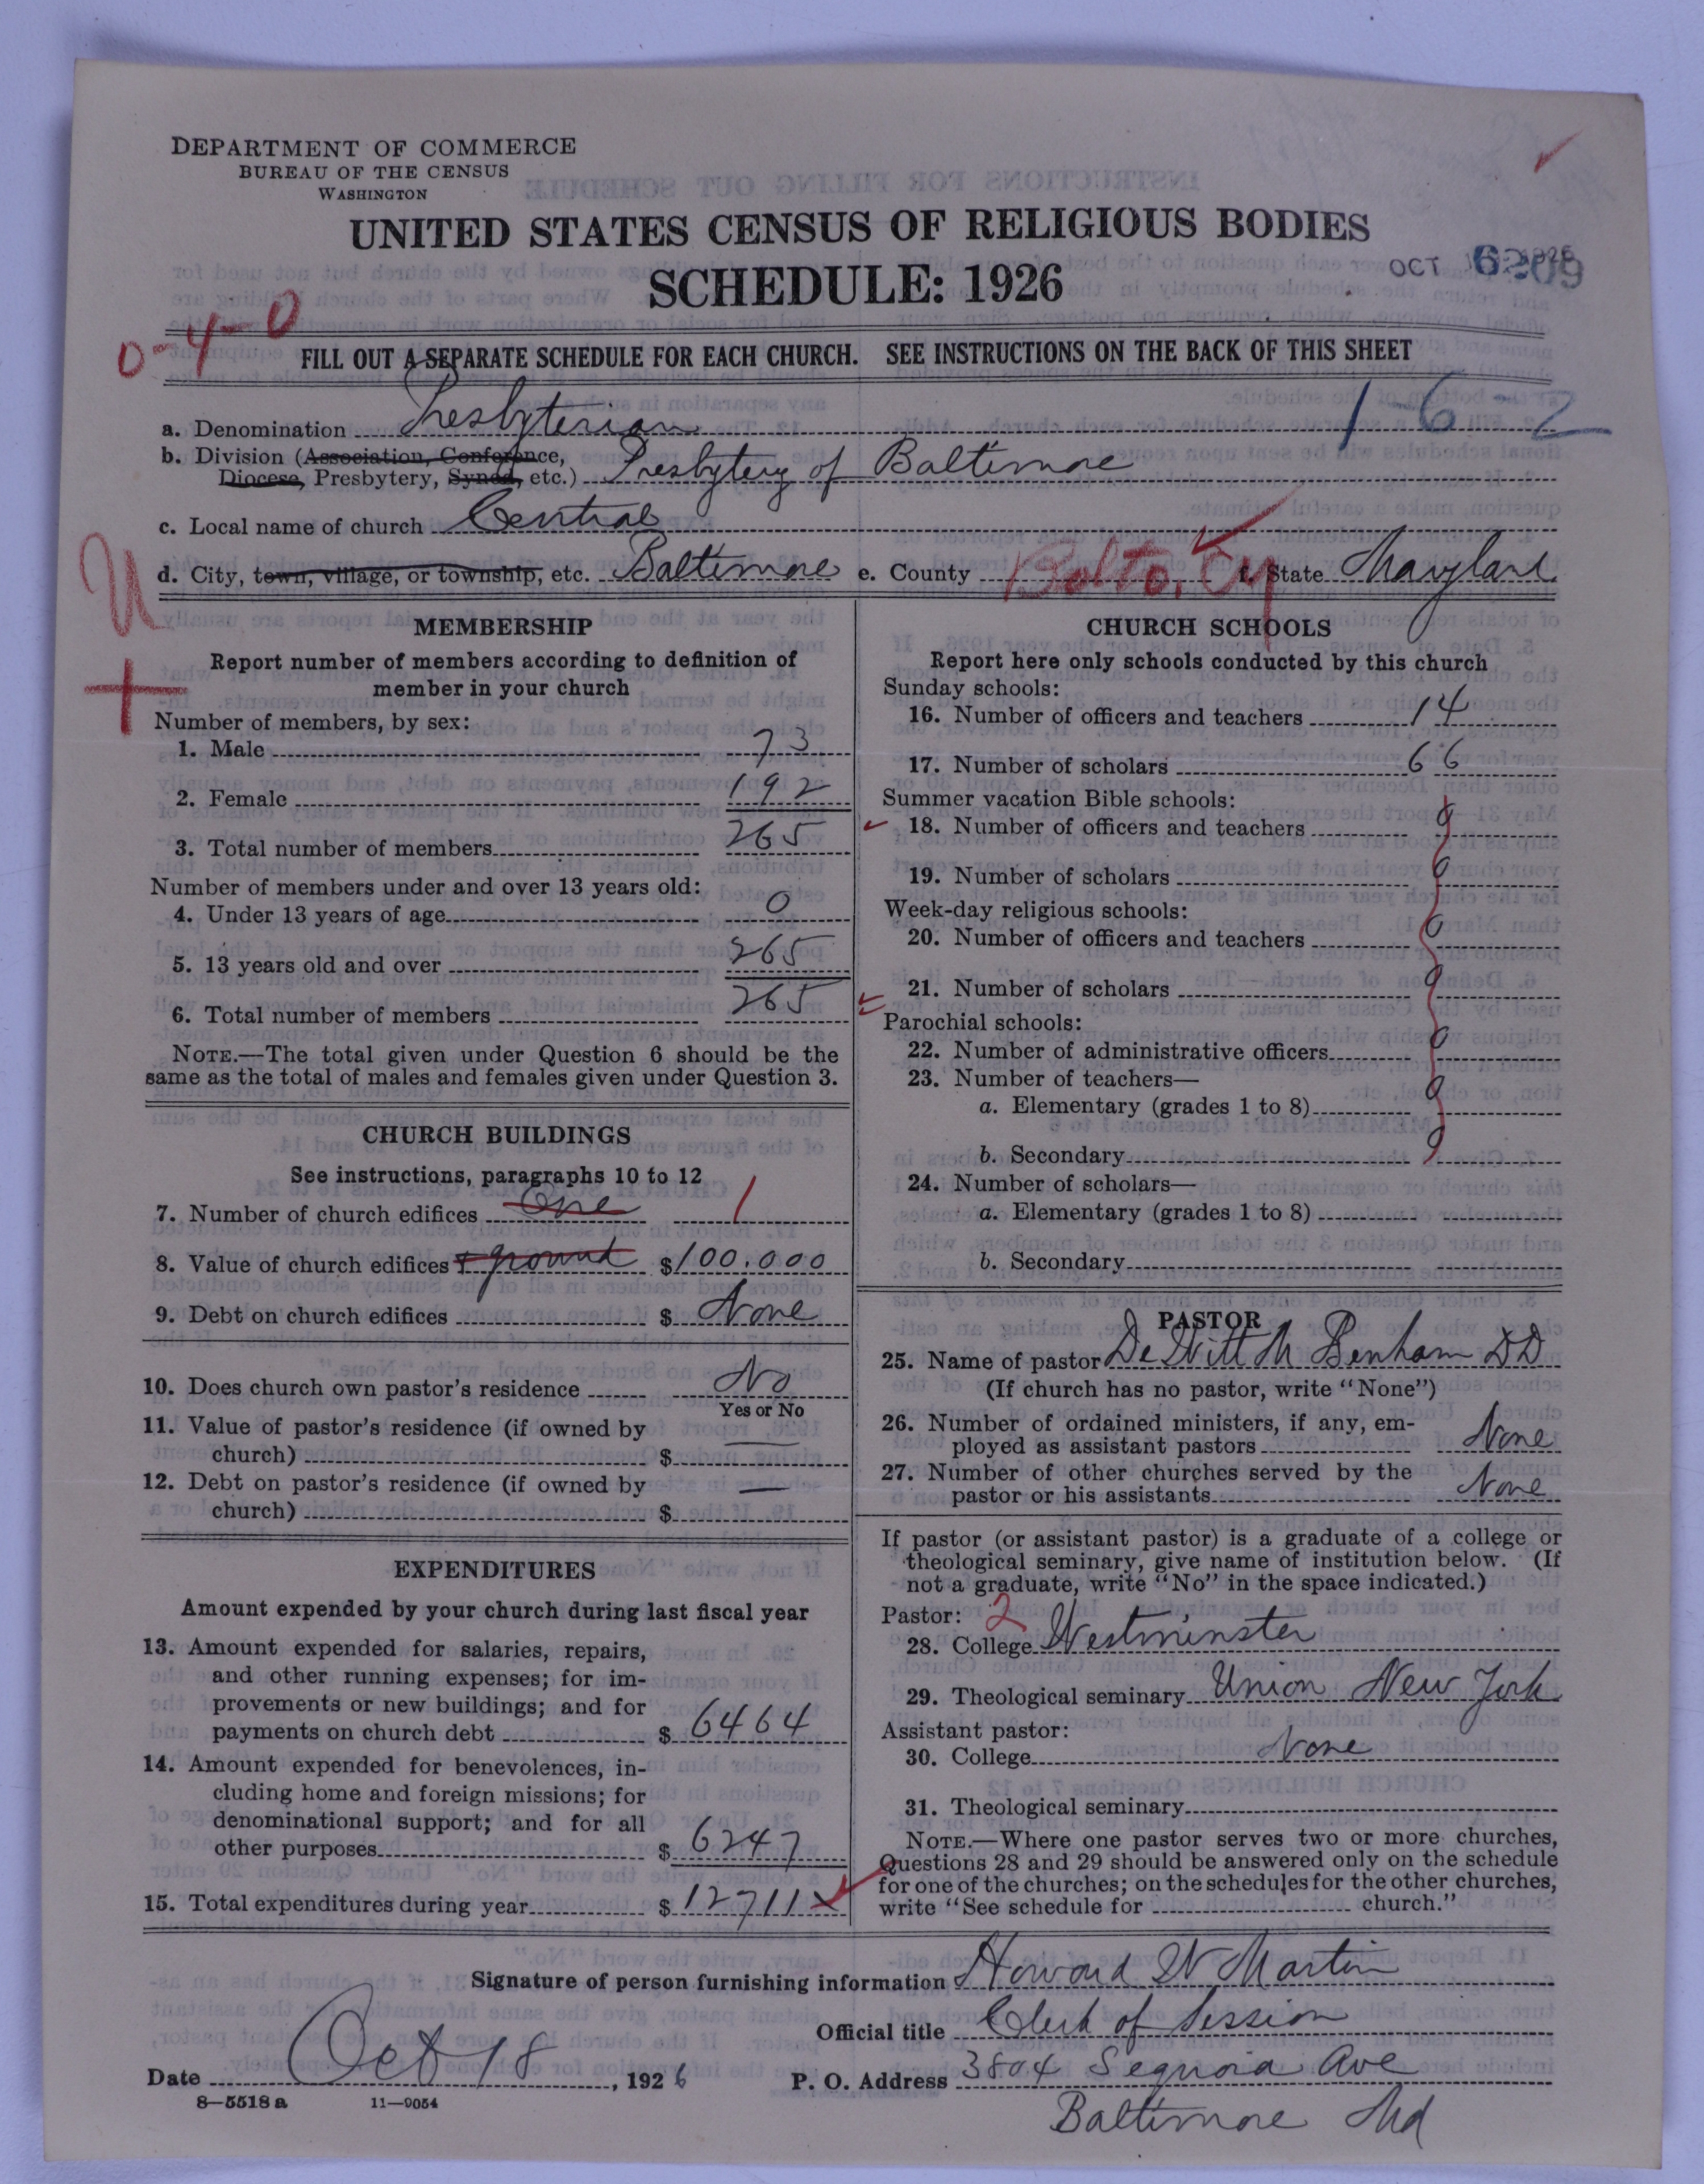 DEPARTMENT OF COMMERCE
BUREAU OF THE CENSUS
WASHINGTON
UNITED STATES CENSUS OF RELIGIOUS BODIES
SCHEDULE: 1926
OCT
6209
0-4-0
FILL OUT A SEPARATE SCHEDULE FOR EACH CHURCH. SEE INSTRUCTIONS ON THE BACK OF THIS SHEET
1-6-2
a. Denomination Presbyterian
b. Division (Association, Conference,
Diocese, Presbytery, Synod, etc.) Presbytery of Baltimore
c. Local name of church Central
d. City, town, village, or township, etc. Baltimore e. County Balto. Cy f. State Maryland
U
+
MEMBERSHIP
Report number of members according to definition of
member in your church
Number of members, by sex:
1. Male 73
2. Female 192
3. Total number of members 265
Number of members under and over 13 years old:
4. Under 13 years of age 0
5. 13 years old and over 265
6. Total number of members 265
NOTE.—The total given under Question 6 should be the
same as the total of males and females given under Question 3.
CHURCH BUILDINGS
See instructions, paragraphs 10 to 12
7. Number of church edifices One 1
8. Value of church edifices + ground $100.000
9. Debt on church edifices $ None
10. Does church own pastor's residence No
Yes or No
11. Value of pastor's residence (if owned by
church) $ —
12. Debt on pastor's residence (if owned by
church) $ —
EXPENDITURES
Amount expended by your church during last fiscal year
13. Amount expended for salaries, repairs,
and other running expenses; for im-
provements or new buildings; and for
payments on church debt $ 6464
14. Amount expended for benevolences, in-
cluding home and foreign missions; for
denominational support; and for all
other purposes $ 6247
15. Total expenditures during year $ 12711
CHURCH SCHOOLS
Report here only schools conducted by this church
Sunday schools:
16. Number of officers and teachers 14
17. Number of scholars 66
Summer vacation Bible schools:
18. Number of officers and teachers 0
19. Number of scholars 0
Week-day religious schools:
20. Number of officers and teachers 0
21. Number of scholars 0
Parochial schools:
22. Number of administrative officers 0
23. Number of teachers—
a. Elementary (grades 1 to 8) 0
b. Secondary 0
24. Number of scholars—
a. Elementary (grades 1 to 8)
b. Secondary
PASTOR
25. Name of pastor De Witt M Benham DD
(If church has no pastor, write "None")
26. Number of ordained ministers, if any, em-
ployed as assistant pastors None
27. Number of other churches served by the
pastor or his assistants None
If pastor (or assistant pastor) is a graduate of a college or
theological seminary, give name of institution below. (If
not a graduate, write "No" in the space indicated.)
Pastor: 2
28. College Westminster
29. Theological seminary Union New York
Assistant pastor:
30. College None
31. Theological seminary
NOTE.—Where one pastor serves two or more churches,
Questions 28 and 29 should be answered only on the schedule
for one of the churches; on the schedules for the other churches,
write "See schedule for church."
Signature of person furnishing information Howard W Martin
Official title Clerk of Session
Date Oct 18, 1926 P. O. Address 3804 Sequoia Ave
Baltimore Md
8—5518 a 11—9054